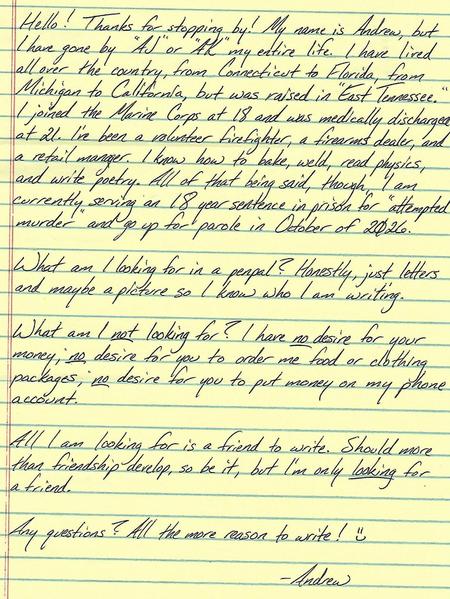 Hello! Thanks for stopping by! My name is Andrew, but
I have gone by "AJ" or "AK" my entire life. I have lived
all over the country, from Connecticut to Florida, from
Michigan to California, but was raised in "East Tennessee."
I joined the Marine Corps at 18 and was medically discharged
at 21. I've been a volunteer firefighter, a firearms dealer, and
a retail manger. I know how to bake, weld, read physics,
and write poetry. All of that being said, though, I am
currently serving an 18 year sentence in prison for "attempted
murder" and go up for parole in October of 2026.
What am I looking for in a penpal? Honestly, just letters
and maybe a picture so I know who I am writing.
What am I not looking for? I have no desire for your
money; no desire for you to order me food or clothing
packages; no desire for you to put money on my phone
account.
All I am looking for is a friend to write. Should more
than friendship develop, so be it, but I'm only looking for
a friend.
Any questions? All the more reason to write! :)
-Andrew